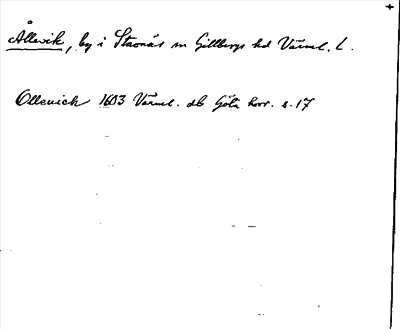 Ållevik, by i Stavnäs sn Gillbergs hd Värml. L.
Ollevich 1603 Värml. db Göta hovr. s. 17